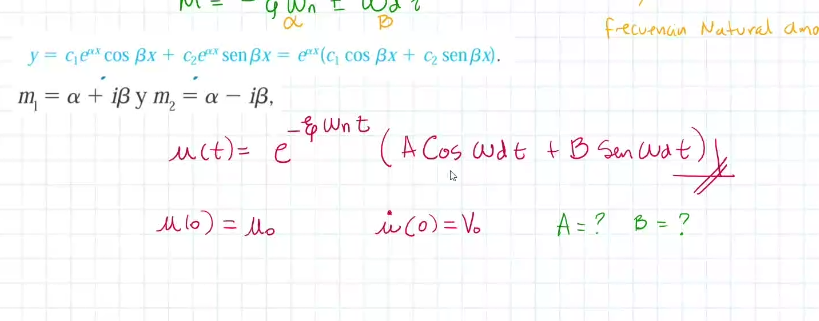 M = - ξ Wn ± Wd i
α β
frecuencia Natural amo
y = c₁e^αx cos βx + c₂e^αx sen βx = e^αx(c₁ cos βx + c₂ sen βx).
m₁ = α + iβ y m₂ = α − iβ,
u(t) = e^-ξ Wn t ( A Cos Wd t + B Sen Wd t )
u(0) = u₀ u̇(0) = V₀ A = ? B = ?